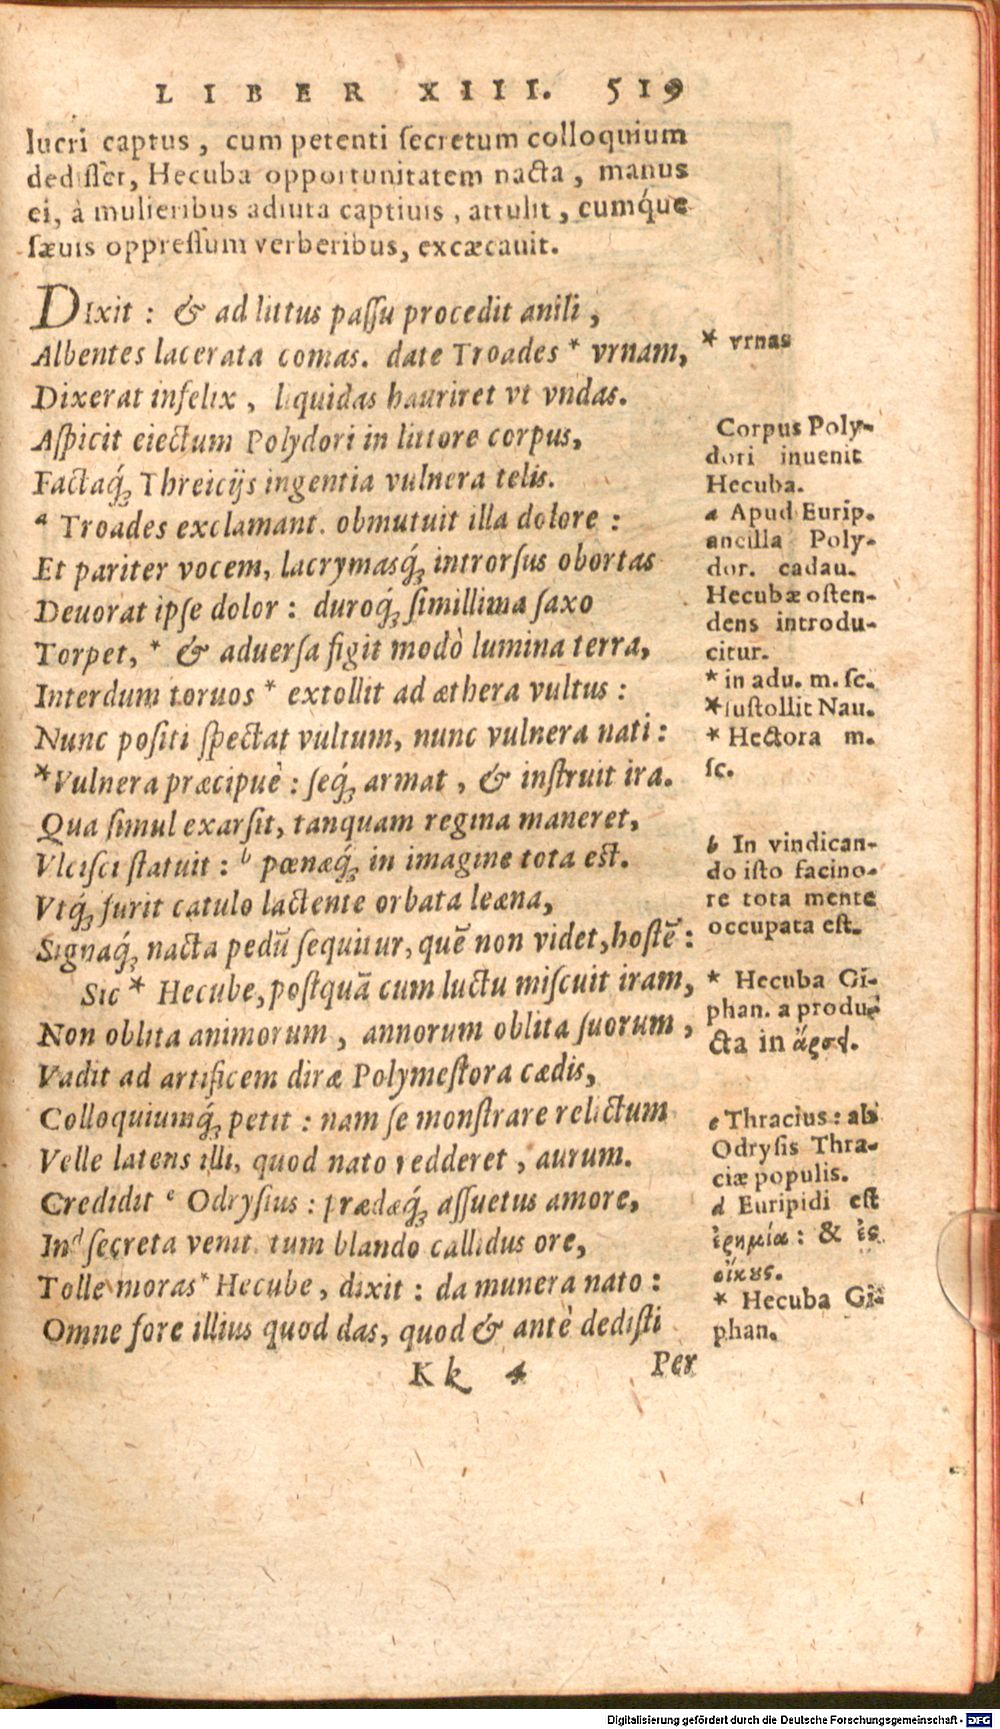 LIBER XIII. 519
lucri captus, cum petenti ſecretum colloquium
dediſſet, Hecuba opportunitatem nacta, manus
ei, à mulieribus adiuta captiuis, attulit, cumq́ue
ſæuis oppreſſum verberibus, excæcauit.
DIxit : & ad littus paſſu procedit anili,
Albentes lacerata comas. date Troades * vrnam,
Dixerat infelix, liquidas hauriret vt vndas.
Aſpicit eiectum Polydori in littore corpus,
Factaq́ꝫ Threicijs ingentia vulnera telis.
a Troades exclamant. obmutuit illa dolore :
Et pariter vocem, lacrymasq́ꝫ introrſus obortas
Deuorat ipſe dolor : duroq́ꝫ ſimillima ſaxo
Torpet, * & aduerſa figit modò lumina terra,
Interdum toruos * extollit ad æthera vultus :
Nunc poſiti ſpectat vultum, nunc vulnera nati :
*Vulnera præcipuè : ſeq́ꝫ armat, & inſtruit ira.
Qua ſimul exarſit, tanquam regina maneret,
Vlciſci ſtatuit : b pœnæq́ꝫ in imagine tota eſt.
Vtq́ꝫ furit catulo lactente orbata leæna,
Signaq́ꝫ nacta pedū ſequitur, quē non videt, hoſtē :
Sic * Hecube, poſtquā cum luctu miſcuit iram,
Non oblita animorum, annorum oblita ſuorum,
Vadit ad artificem diræ Polymeſtora cædis,
Colloquiumq́ꝫ petit : nam ſe monſtrare relictum
Velle latens illi, quod nato redderet, aurum.
Credidit c Odryſius : prædæq́ꝫ aſſuetus amore,
In d ſecreta venit. tum blando callidus ore,
Tolle moras * Hecube, dixit : da munera nato :
Omne fore illius quod das, quod & antè dediſti
Kk 4 Per
* vrnas
Corpus Poly-
dori inuenit
Hecuba.
a Apud Eurip.
ancilla Poly-
dor. cadau.
Hecubæ oſten-
dens introdu-
citur.
* in adu. m. ſc.
*ſuſtollit Nau.
* Hectora m.
ſc.
b In vindican-
do iſto facino-
re tota mente
occupata eſt.
* Hecuba Gi-
phan. a produ-
cta in ἄρσἰ.
c Thracius : ab
Odryſis Thra-
ciæ populis.
d Euripidi eſt
ἐρημία : & ἐς
οἴκους.
* Hecuba Gi-
phan.
Digitalisierung gefördert durch die Deutsche Forschungsgemeinschaft - DFG